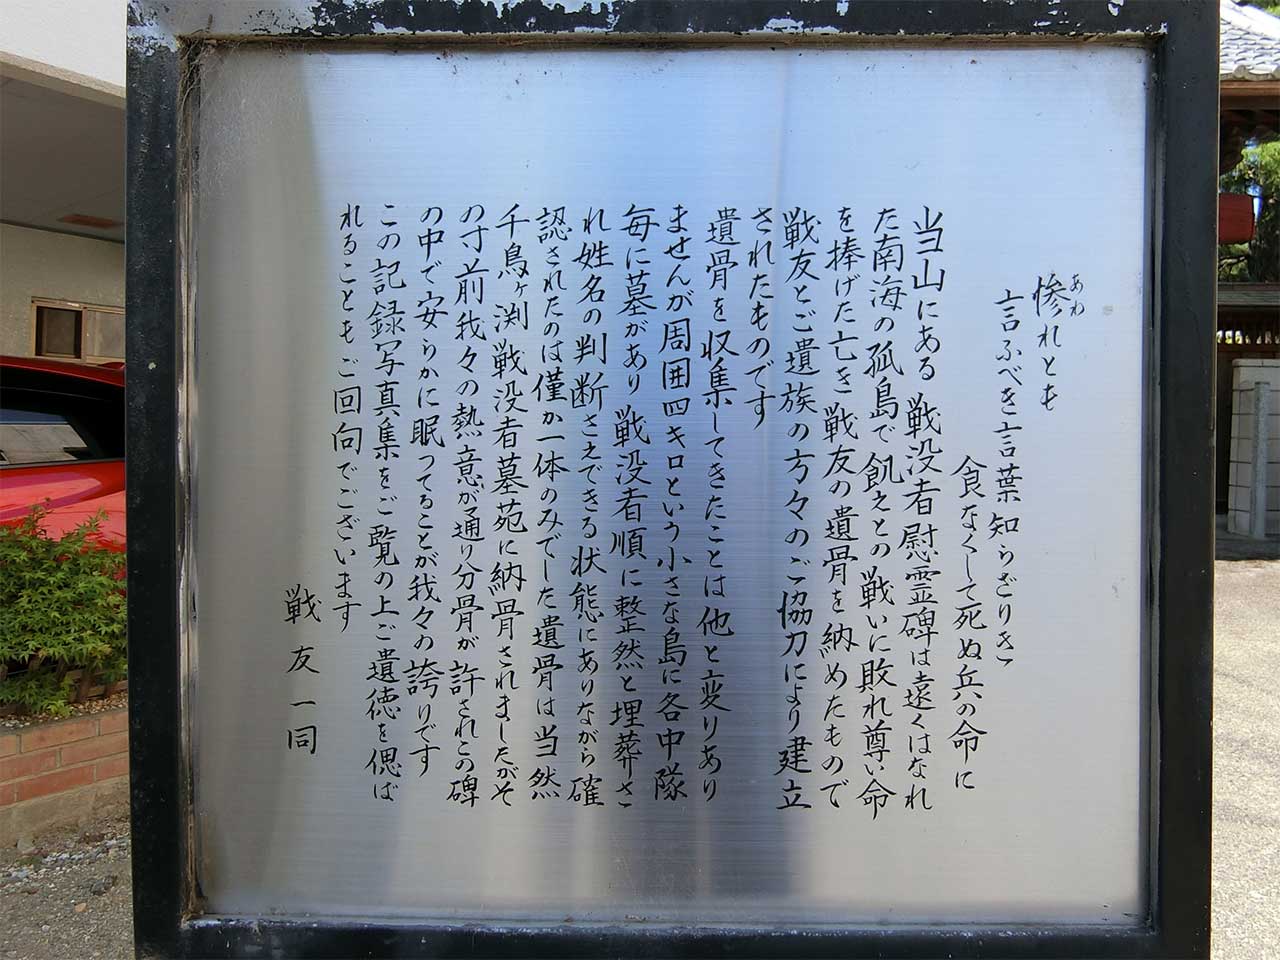 惨れとも
あわ
言ふべき言葉知らざりき
食なくして死ぬ兵の命に
当山にある戦没者慰霊碑は遠くはなれ
た南海の孤島で飢えとの戦いに敗れ尊い命
を捧げた亡き戦友の遺骨を納めたもので
戦友とご遺族の方々のご協力により建立
されたものです
遺骨を収集してきたことは他と変りあり
ませんが周囲四キロという小さな島に各中隊
毎に墓があり戦没者順に整然と埋葬さ
れ姓名の判断さえできる状態にありながら確
認されたのは僅か一体のみでした遺骨は当然
千鳥ヶ渕戦没者墓苑に納骨されましたがそ
の寸前我々の熱意が通り分骨が許されこの碑
の中で安らかに眠ってることが我々の誇りです
この記録写真集をご覧の上ご遺徳を偲ば
れることもご回向でございます
戦友一同